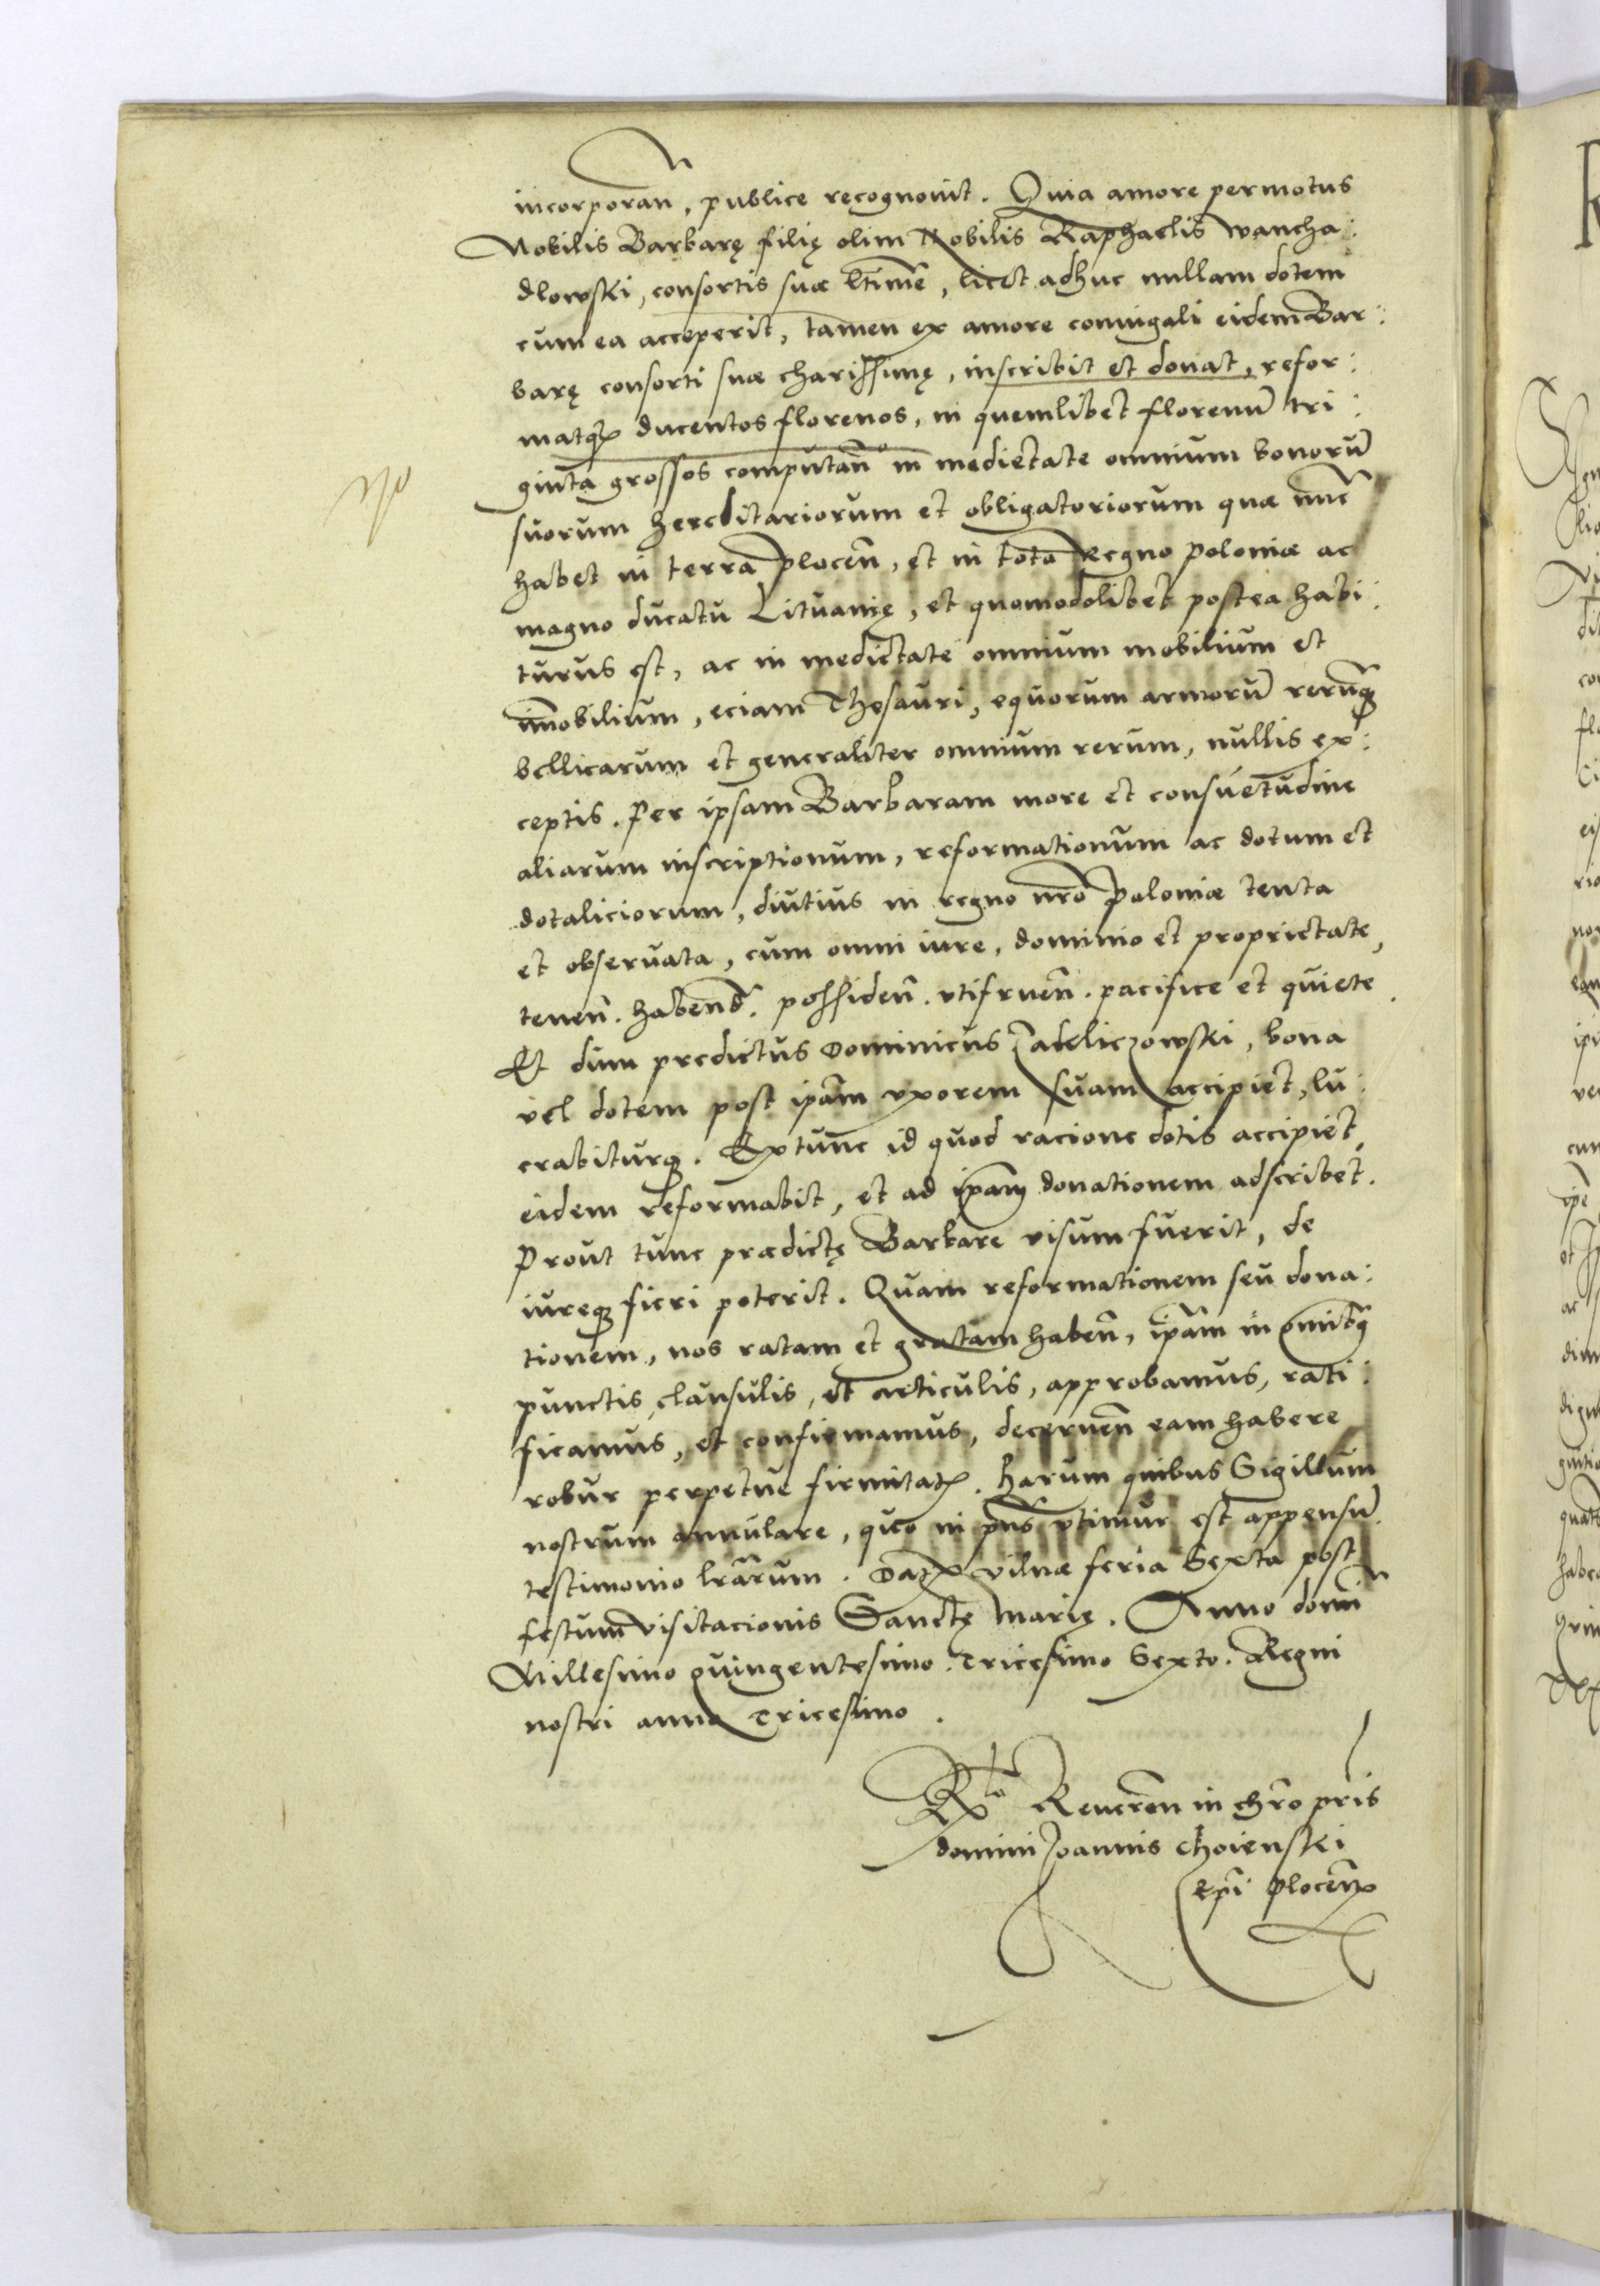 incorporan̄, publice recognovit. Quia amore permotus
Nobilis Barbarę filię olim Nobilis Raphaelis Wancha:
dlowski, consortis suæ ltimę, licet adhuc nullam dotem
cum ea acceperit, tamen ex amore coniugali eidem Bar:
barę consorti suæ charissimę, inscribit et donat, refor:
matqꝫ ducentos florenos, in quemlibet florenū tri:
ginta grossos computan̄ in medietate omnium bonorū
suorum hereditariorum et obligatoriorum quæ nūc
habet in terra plocen̄, et in toto Regno poloniæ ac
magno ducatu Lituanię, et quomodolibet postea habi:
turus est, ac in medietate omnium mobilium et
im̄obilium, eciam Thesauri, equorum armorū rerūqꝫ
bellicarum et generaliter omnium rerum, nullis ex:
ceptis. Per ipsam Barbaram more et consuetudine
aliarum inscriptionum, reformationum ac dotum et
dotaliciorum, diutius in regno nr̄o poloniæ tenta
et observata, cum omni iure, dominio et proprietate,
tenen̄. habend̄. possiden̄. utifruen̄. pacifice et quiete.
Et dum predictus Dominicus Zadeliczowski, bona
vel dotem post ip̄am uxorem suam accipiet, lu:
crabiturqꝫ. Extunc id quod racione dotis accipiet,
eidem reformabit, et ad ip̄am donationem adscribet.
Prout tunc prædictę Barbare visum fuerit, de
iureqꝫ fieri poterit. Quam reformationem seu dona:
tionem, nos ratam et gratam haben̄, ip̄am in omibꝫ
punctis, clausulis, et articulis, approbamus, rati:
ficamus, et confirmamus, decernen̄ eam habere
robur perpetue firmitatꝭ. Harum quibus Sigillum
nostrum annulare, quo in pn̄s utimur est appensū
testimonio lr̄arum. Datꝭ Vilnæ feria Sexta post
festum visitacionis Sanctę Marię. Anno domī
Millesimo quingentesimo. Tricesimo Sexto. Regni
nostri anno Tricesimo.
Rᵒ Reveren̄ in chr̄o pr̄is
domini Joannis Choienski
Ep̄i plocen̄